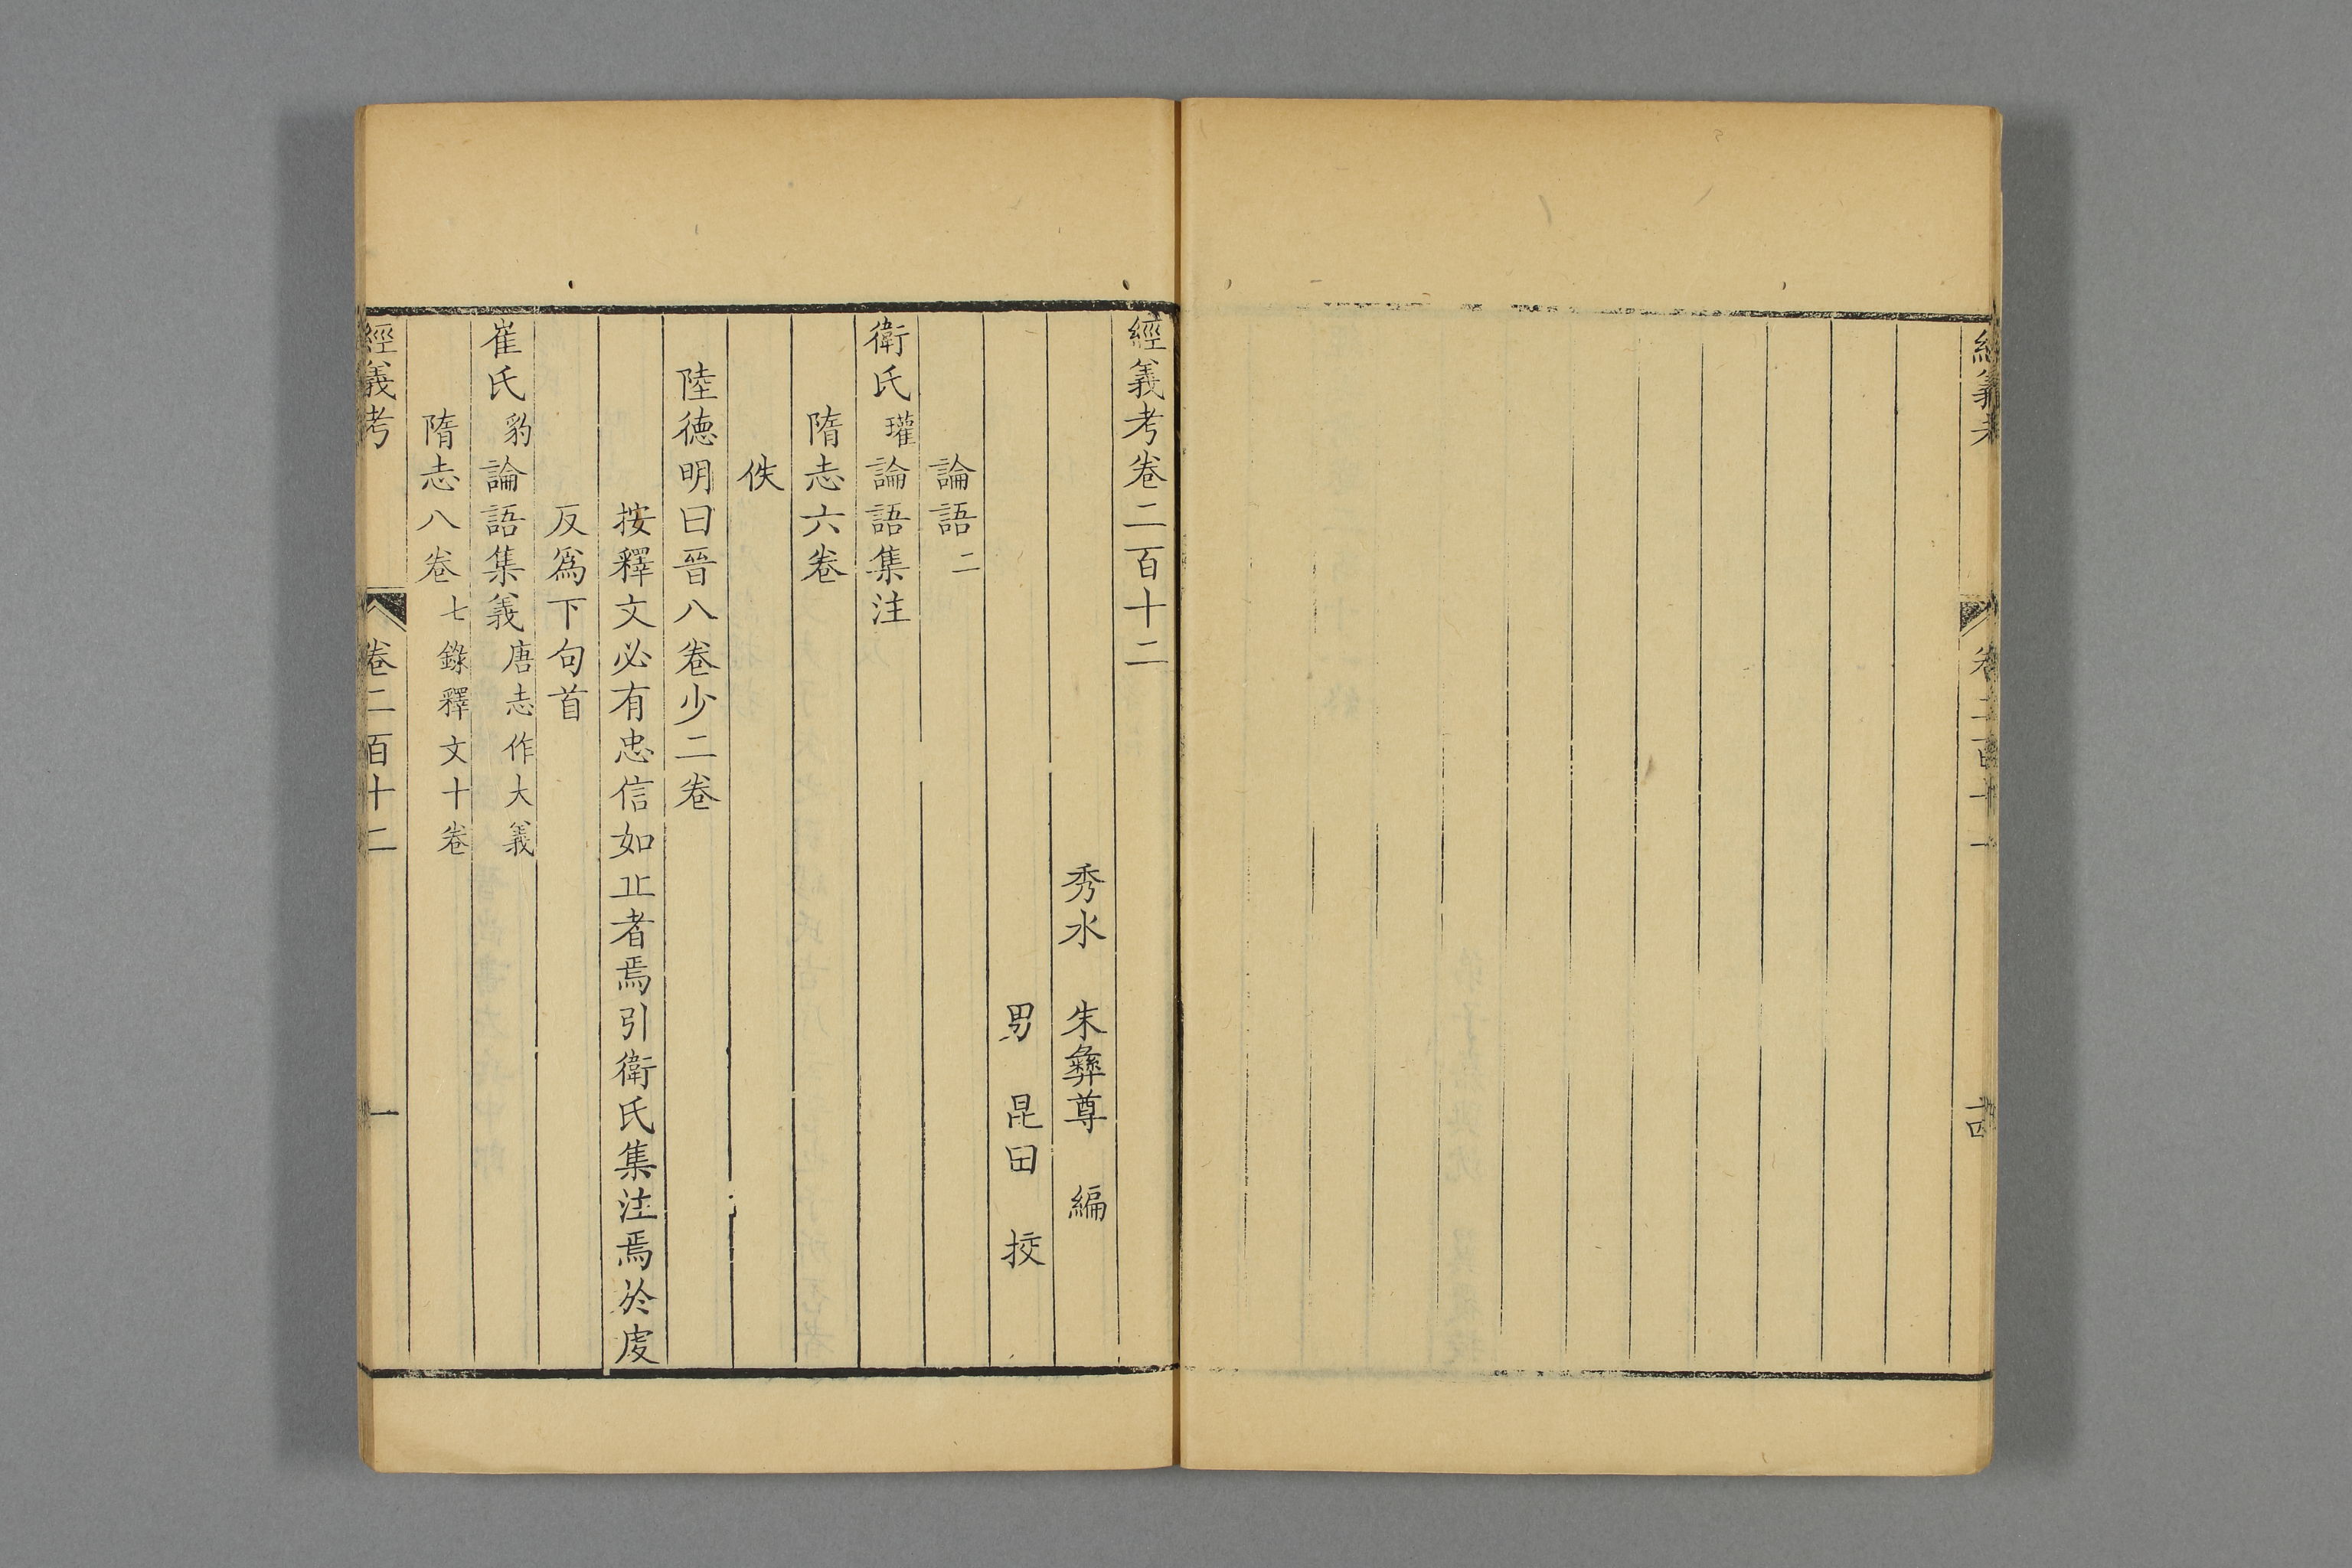 經義考 卷二百十一 十四
經義考卷二百十二
秀水 朱彝尊 編
男 昆田 挍
論語二
衛氏瓘論語集注
隋志六卷
佚
陸德明曰晉八卷少二卷
按釋文必有忠信如丘者焉引衛氏集注焉於虔
反爲下句首
崔氏豹論語集義唐志作大義
隋志八卷七錄釋文十卷
經義考 卷二百十二 一